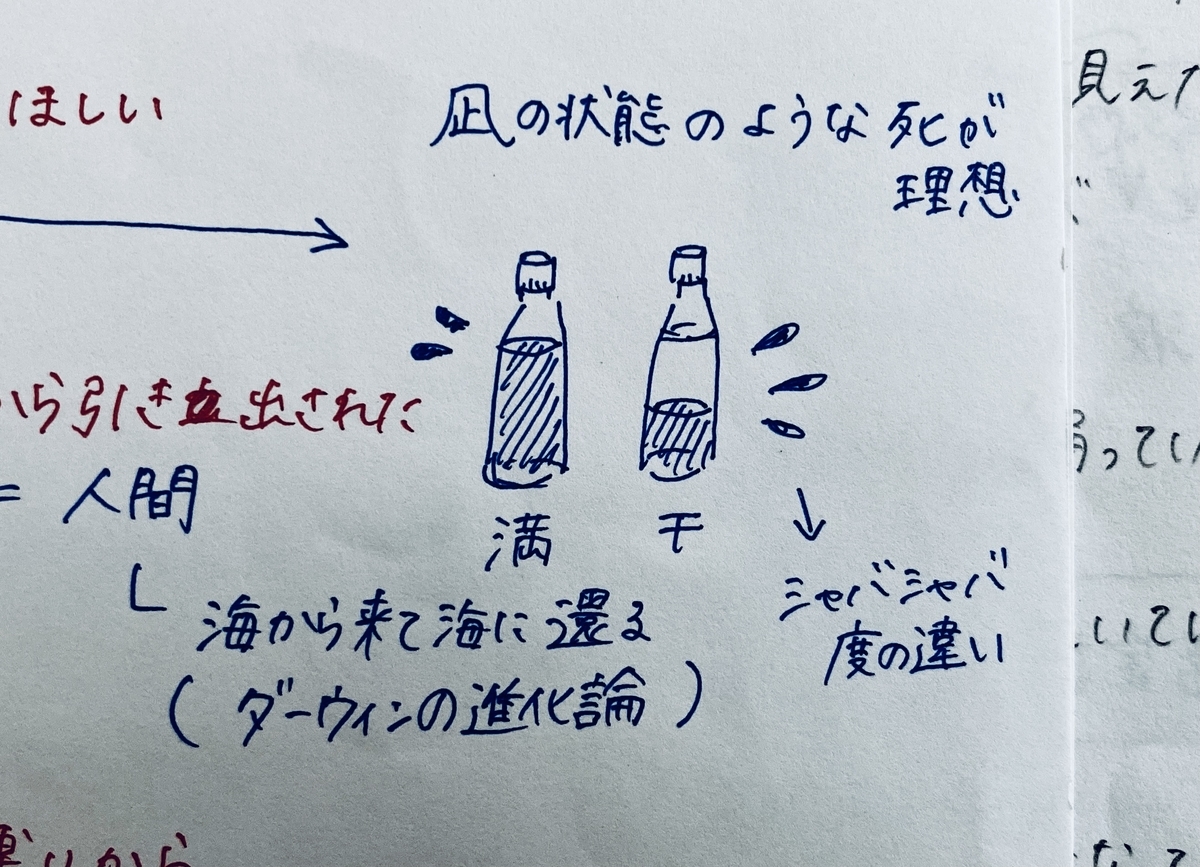 ほしい
凪の状態のような死が
理想
から引き出された
= 人間
満
干
海から来て海に還る
(ダーウィンの進化論)
シャバシャバ
度の違い
見えた
ってい
いてい
から